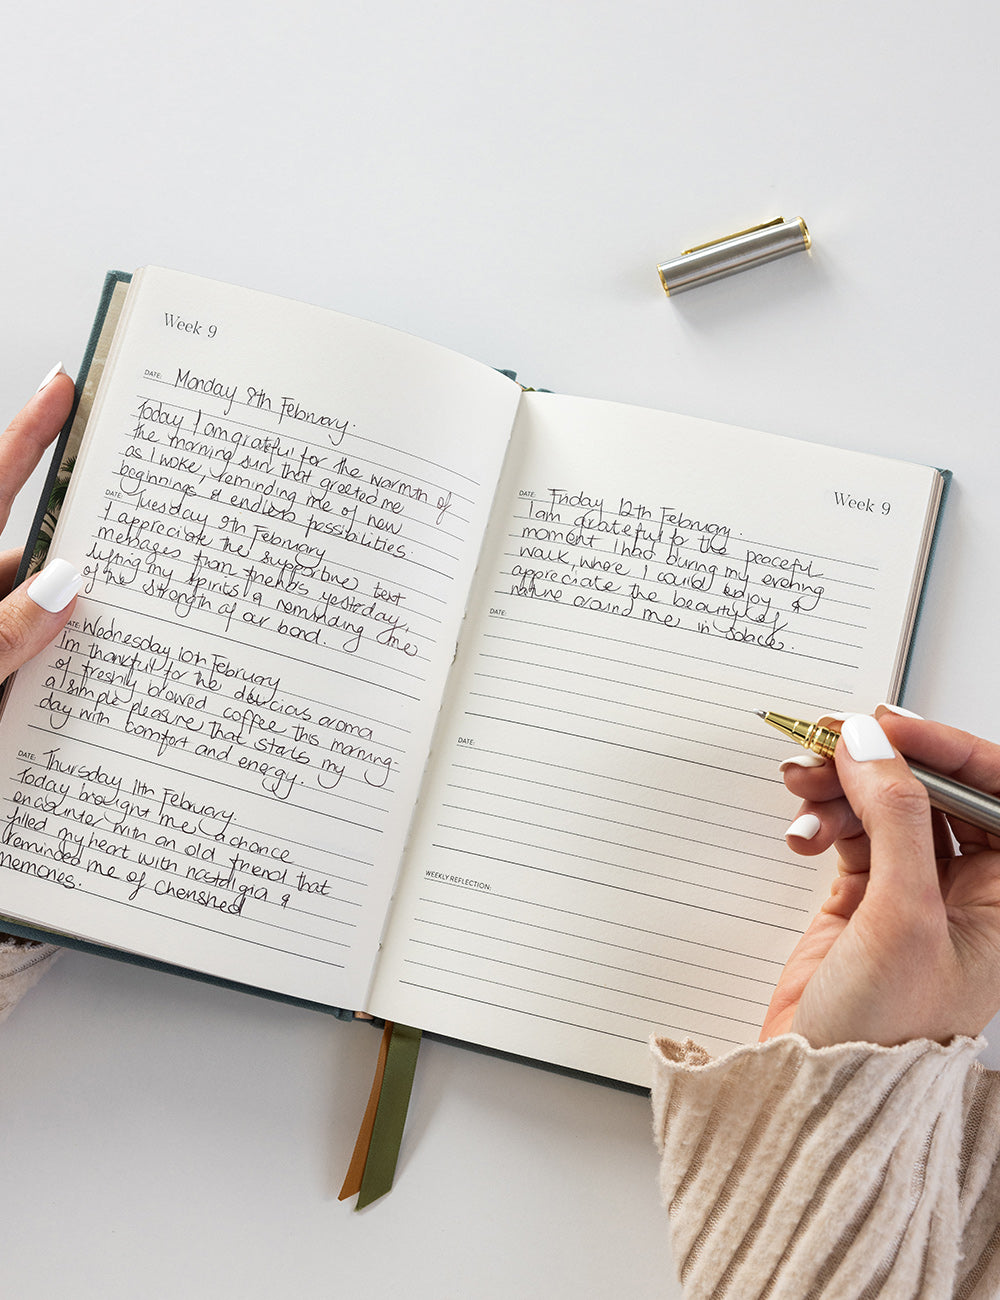 Week 9
DATE: Monday 8th February.
Today I am grateful for the warmth of
the morning sun that greeted me
as I woke, reminding me of new
beginnings & endless possibilities.
DATE: Tuesday 9th February
I appreciate the supportive text
messages from friends yesterday,
lifting my spirits & reminding me
of the strength of our bond.
DATE: Wednesday 10th February
I'm thankful for the delicious aroma
of freshly brewed coffee this morning-
a simple pleasure that starts my
day with comfort and energy.
DATE: Thursday 11th February.
Today brought me a chance
encounter with an old friend that
filled my heart with nostalgia &
reminded me of cherished
memories.
Week 9
DATE: Friday 12th February.
I am grateful for the peaceful
moment I had during my evening
walk, where I could enjoy &
appreciate the beauty of
nature around me in space.
DATE:
DATE:
WEEKLY REFLECTION: